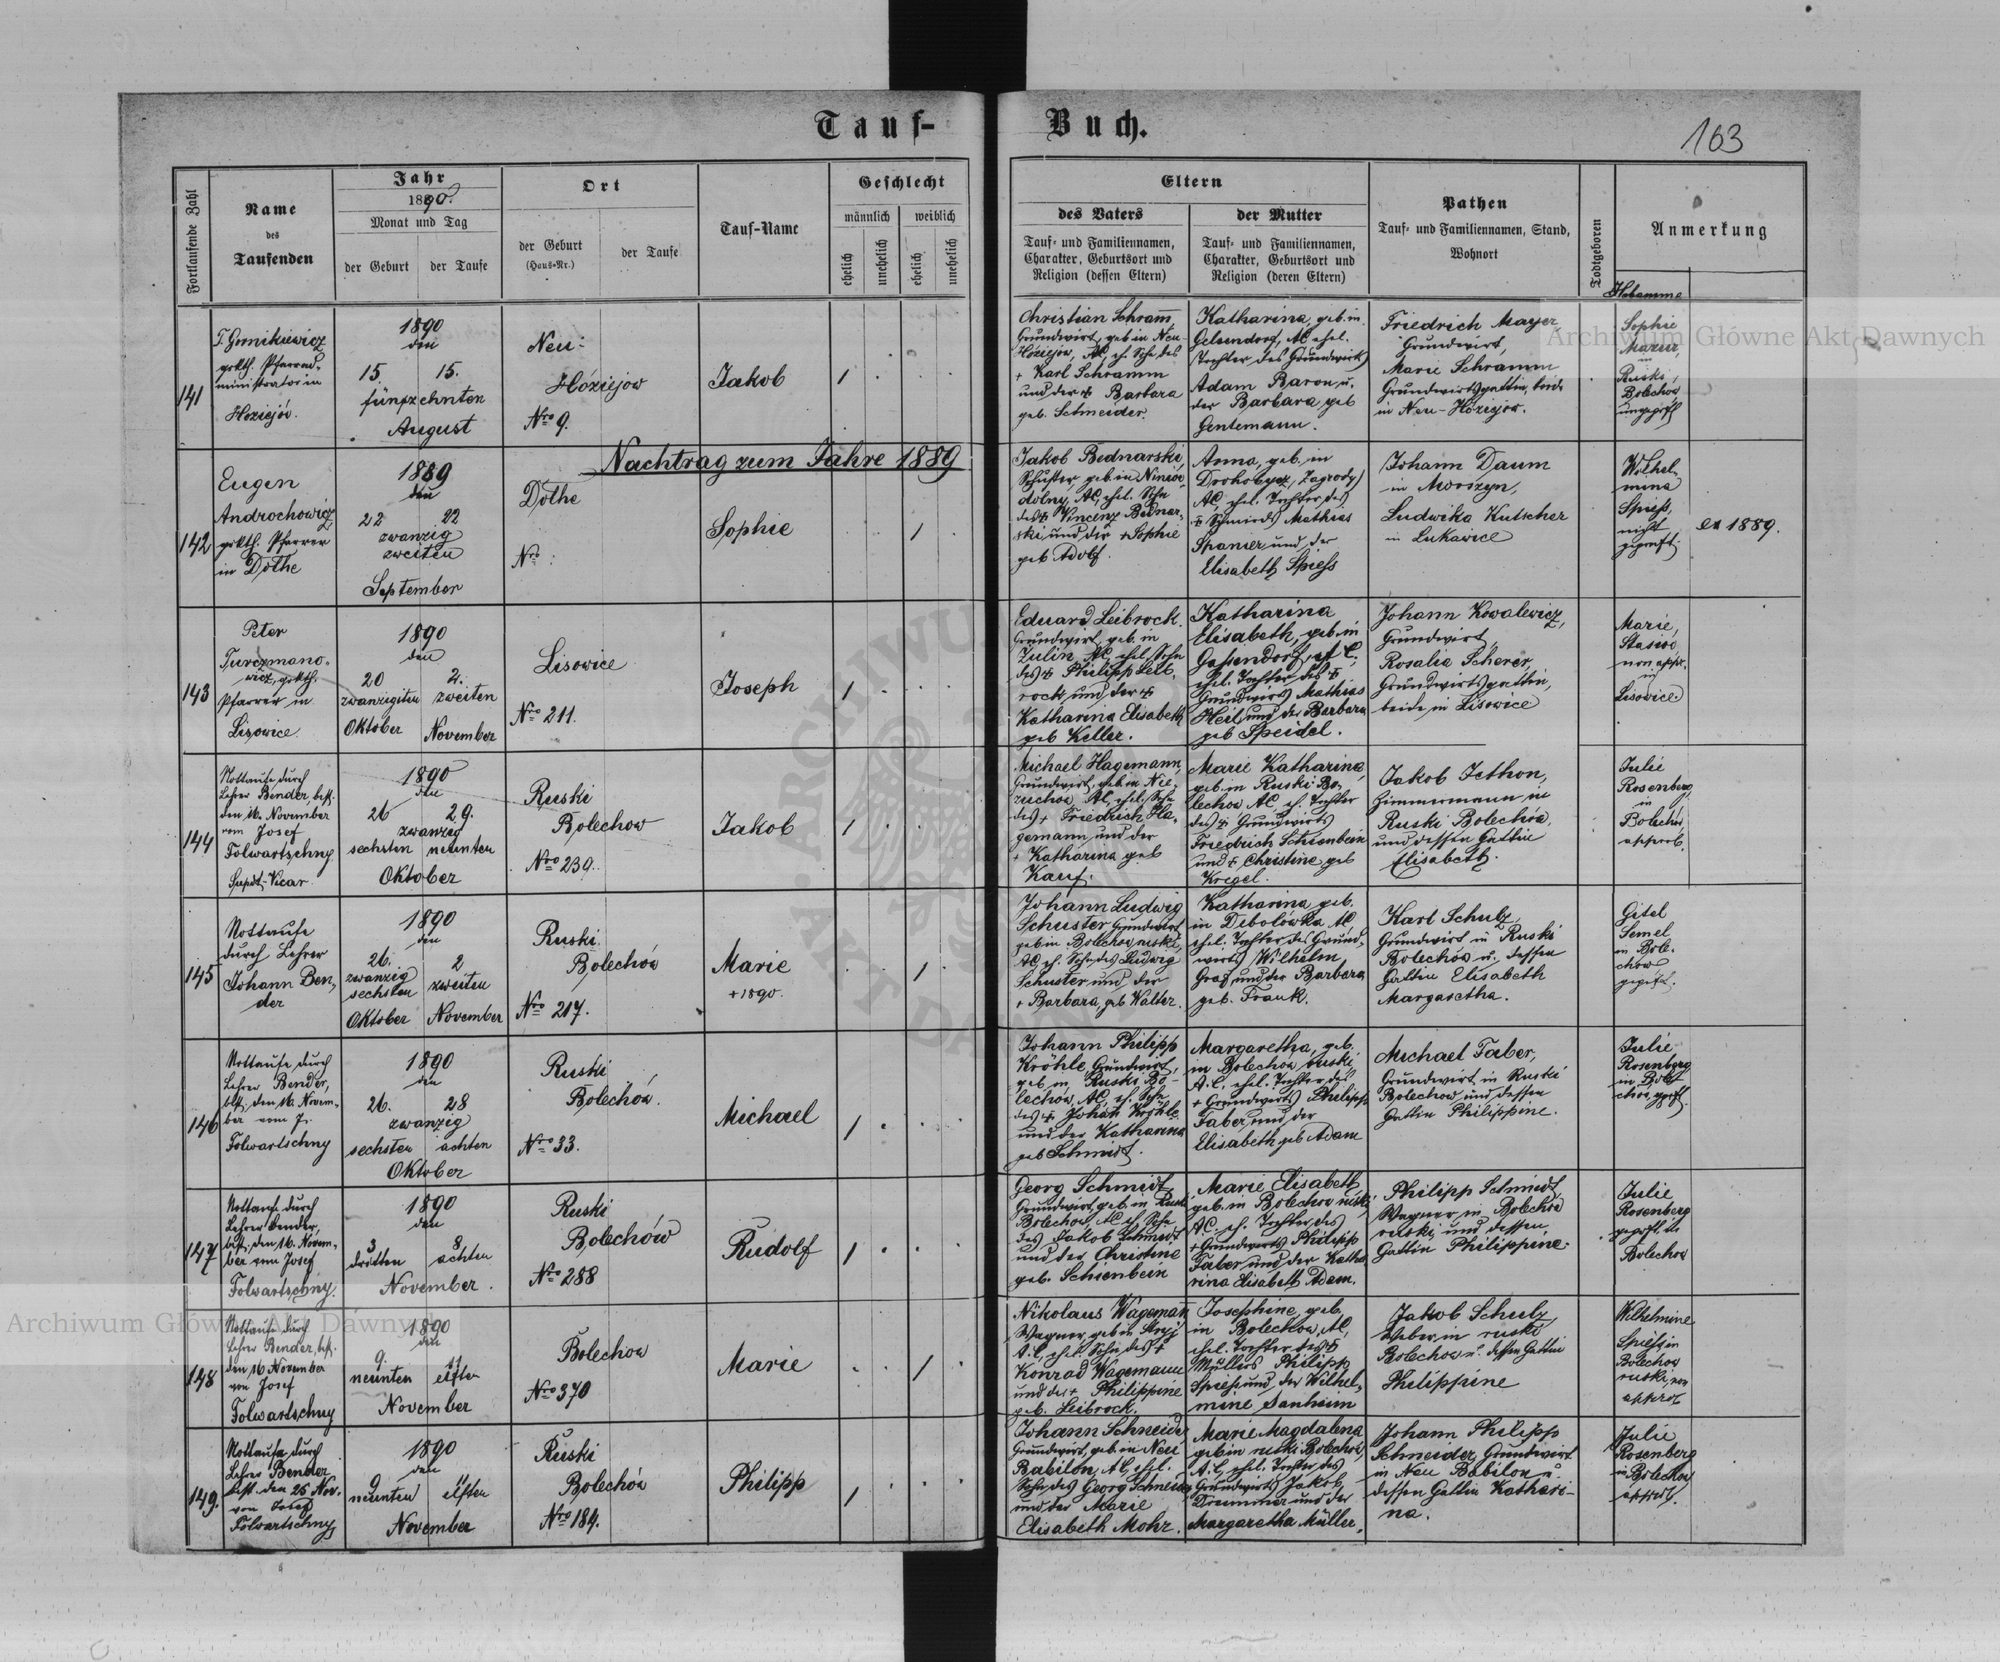 Tauf-Buch.
163
Fortlaufende Zahl
Name
des
Taufenden
Jahr
1890.
Monat und Tag
der Geburt
der Taufe
Ort
der Geburt
(Haus-Nr.)
der Taufe
Tauf-Name
Geschlecht
männlich
weiblich
ehelich
unehelich
ehelich
unehelich
Eltern
des Vaters
Tauf- und Familiennamen,
Charakter, Geburtsort und
Religion (dessen Eltern)
der Mutter
Tauf- und Familiennamen,
Charakter, Geburtsort und
Religion (deren Eltern)
Pathen
Tauf- und Familiennamen, Stand,
Wohnort
Todtgeboren
Anmerkung
Hebamme
141
grkth. Pfarrad-
ministrator in
1890
den
15. 15.
fünfzehnten
August
Neu-
Hóziejow
Nro 9.
Jakob
1
Christian Schramm
Grundwirt, geb. in Neu-
Hóziejow, AC, eh. Sohn des
+ Karl Schramm
und der + Barbara
geb. Schneider.
Katharina, geb. in
Gelsendorf, AC ehel.
Tochter des Grundwirts
Adam Baron u.
der Barbara geb
Gentemann.
Friedrich Mayer,
Grundwirt,
Marie Schramm
Grundwirtsgattin, beide
in Neu-Hóziejow.
Sophie
Mazur,
in
Ruski
Bolechow
ungeprft
Nachtrag zum Jahre 1889
142
Eugen
Androchowicz
grkth. Pfarrer
in Dothe
1889
den
22 22
zwanzig
zweiten
September
Dothe
Nro:
Sophie
1
Jakob Bednarski,
Schuster, geb. in Niniów
dolny, AC, ehel. Sohn
des + Vincenz Bednar-
ski und der + Sophie
geb Adolf.
Anna, geb. in
Drohobycz, (Zagrody)
AC, ehel. Tochter des
+ Schmieds Mathias
Spanier und der
Elisabeth Spiess
Johann Daum
in Morszyn,
Ludwika Kutscher
in Lukawice
Wilhel-
mina
Spiess,
nicht
geprft.
ex 1889.
143
Peter
Turczmano-
wicz, grkth.
Pfarrer in
Lisowice.
1890
den
20 2.
zwanzigsten zweiten
Oktober November
Lisowice
Nro 211.
Joseph
1
Eduard Leibrock.
Grundwirt, geb. in
Zulin, AC, ehel. Sohn
des + Philipp Leib-
rock und der +
Katharina Elisabeth
geb Keller.
Katharina
Elisabeth, geb. in
Gassendorf, A C.,
ehel. Tochter des +
Grundwirts Mathias
Heil und der Barbara
geb Speidel.
Johann Kowalewicz,
Grundwirt,
Rosalia Scherer,
Grundwirtsgattin,
beide in Lisowice
Marie
Stasiów
non appr.
in
Lisowice
144
Nottaufe durch
Lehrer Bender, best.
den 16. November
vom Josef
Folwartschny
Supdt-Vicar
1890
den
26 29.
zwanzig
sechsten neunten
Oktober
Ruski
Bolechow
Nro 239.
Jakob
1
Michael Hagemann,
Grundwirt, geb. in Nie-
zuchow, AC, ehel. Sohn
des + Friedrich Ha-
gemann und der
+ Katharina geb
Kauf.
Marie Katharina,
geb. in Ruski Bo-
lechow AC, eh. Tochter
des + Grundwirts
Friedrich Schienbein
und + Christine geb
Kregel.
Jakob Jethon,
Zimmermann in
Ruski Bolechów,
und dessen Gattin
Elisabeth.
Julie
Rosenberg
in
Bolechow
approb.
145
Nottaufe
durch Lehrer
Johann Ben-
der
1890
den
26. 2
zwanzig
sechsten zweiten
Oktober November
Ruski
Bolechów
Nro 217.
Marie
+ 1890.
1
Johann Ludwig
Schuster Grundwirt
geb in Bolechow ruski,
AC, eh. Sohn des Ludwig
Schuster und der
+ Barbara, geb Walter.
Katharina geb.
in Debolówka AC
ehel. Tochter des Grund-
wirts Wilhelm
Graf und der Barbara
geb. Frank.
Karl Schulz,
Grundwirt in Ruski
Bolechów u. dessen
Gattin Elisabeth
Margaretha.
Gitel
Semel
in Bole-
chow
geprft.
146
Nottaufe durch
Lehrer Bender,
best. den 16. Novem-
ber vom J.
Folwartschny
1890
den
26. 28
zwanzig
sechsten achten
Oktober
Ruski
Bolechów.
Nro 33.
Michael
1
Johann Philipp
Kröhle, Grundwirt,
geb in Ruski Bo-
lechow, AC, eh. Sohn
des + Johann Kröhle
und der Katharina
geb Schmidt.
Margaretha, geb.
in Bolechow ruski,
A.C. ehel. Tochter des
+ Grundwirts Philipp
Faber und der
Elisabeth geb Adam
Michael Faber,
Grundwirt in Ruski
Bolechow und dessen
Gattin Philippine.
Julie
Rosenberg
in Bole-
chow, gprft.
147
Nottaufe durch
Lehrer Bender,
best. den 16. Novem-
ber vom Josef
Folwartschny.
1890
den
3 8
dritten achten
November.
Ruski
Bolechów
Nro 288
Rudolf
1
Georg Schmidt,
Grundwirt, geb. in Ruski
Bolechow, AC, eh. Sohn
des Jakob Schmidt
und der Christine
geb. Schienbein
Marie Elisabeth,
geb. in Bolechow ruski,
AC, eh. Tochter des
+ Grundwirts Philipp
Faber und der Katha-
rina Elisabeth Adam.
Philipp Schmidt,
Wagner in Bolechow
ruski, und dessen
Gattin Philippine.
Julie
Rosenberg
geprft. in
Bolechow
148
Nottaufe durch
Lehrer Bender, best.
den 16 November
von Josef
Folwartschny
1890
den
9. 11
neunten elften
November
Bolechow
Nro 370
Marie
1
Nikolaus Wagemann
Wagner, geb in Stryj
A.C, ehel Sohn des +
Konrad Wagemann
und der + Philippine
geb. Leibrock.
Josephine, geb.
in Bolechow, AC,
ehel. Tochter des +
Müllers Philipp
Spiess und der Wilhel-
mine Sanheim
Jakob Schulz,
Weber in ruski
Bolechow u. dessen Gattin
Philippine
Wilhelmine
Spiess in
Bolechow
ruski, non
approb
149.
Nottaufe durch
Lehrer Bender,
best. den 25 Nov.
von Josef
Folwartschny
1890
den
9 11
neunten elften
November
Ruski
Bolechów
Nro 184.
Philipp
1
Johann Schneider,
Grundwirt, geb. in Neu
Babilon, AC, ehel.
Sohn des Georg Schneider
und der Marie
Elisabeth Mohr.
Marie Magdalena
geb in ruski Bolechow,
A.C, ehel. Tochter des
Grundwirts Jakob
Drummer und der
Margaretha Müller.
Johann Philipp
Schneider, Grundwirt
in Neu Babilon u.
dessen Gattin Kathari-
na.
Julie
Rosenberg
in Bolechow
approb.
Archiwum Główne Akt Dawnych
Archiwum Główne Akt Dawnych